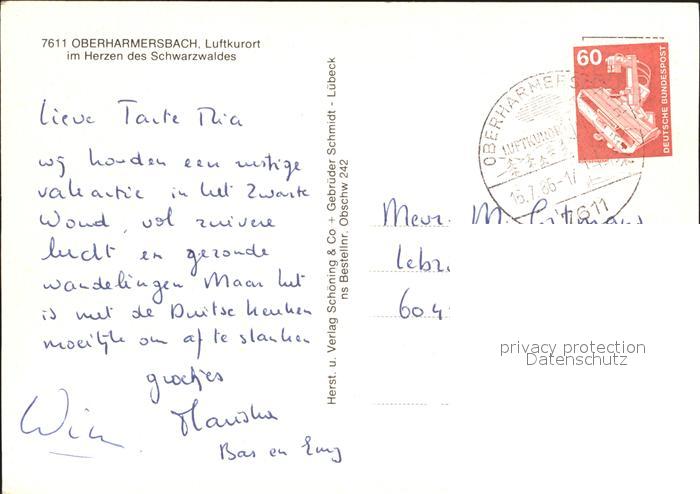 7611 OBERHARMERSBACH, Luftkurort
im Herzen des Schwarzwaldes
Lieve Tante Mia
wij houden een rustige
vakantie in het Zwarte
Woud, vol zuivere
lucht en gezonde
wandelingen Maar het
is met de Duitse keuken
moeilijk om af te slanken
groetjes
Wim
Mariska
Bas en
Herst. u. Verlag Schöning & Co + Gebrüder Schmidt - Lübeck
ns Bestellnr. Obschw 242
60
DEUTSCHE BUNDESPOST
OBERHARMERS
LUFTKURORT
15.7.86-1
7611
Mevr. M.
60 4
privacy protection
Datenschutz